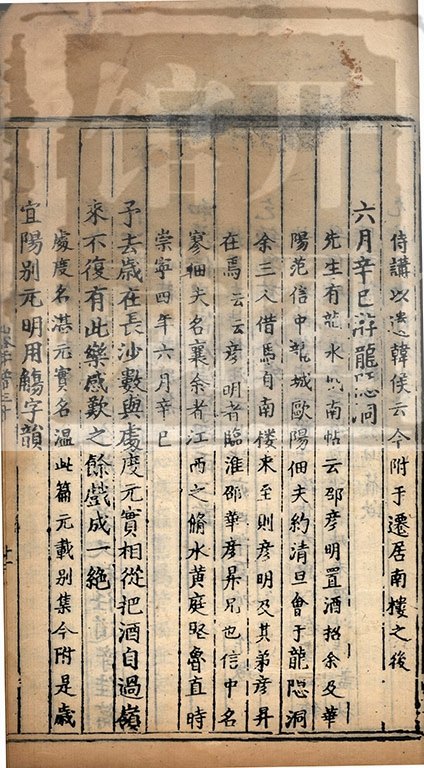 侍講以遺韓侯云今附于遷居南樓之後
六月辛巳游龍隠洞
先生有龍水城南帖云邵彦明置酒招余及華
陽范信中龍城歐陽佃夫約清旦會于龍隠洞
余三人借馬自南樓来至則彦明及其弟彦昇
在焉云云彦明者臨淮邵華彦昇兄也信中名
寥佃夫名襄余者江西之脩水黄庭堅魯直時
崇寧四年六月辛巳
予去歳在長沙數與處度元實相從把酒自過嶺
來不復有此樂感歎之餘戲成一絶
處度名湛元實名溫此篇元載別集今附是歳
宜陽別元明用觴字韻
十二